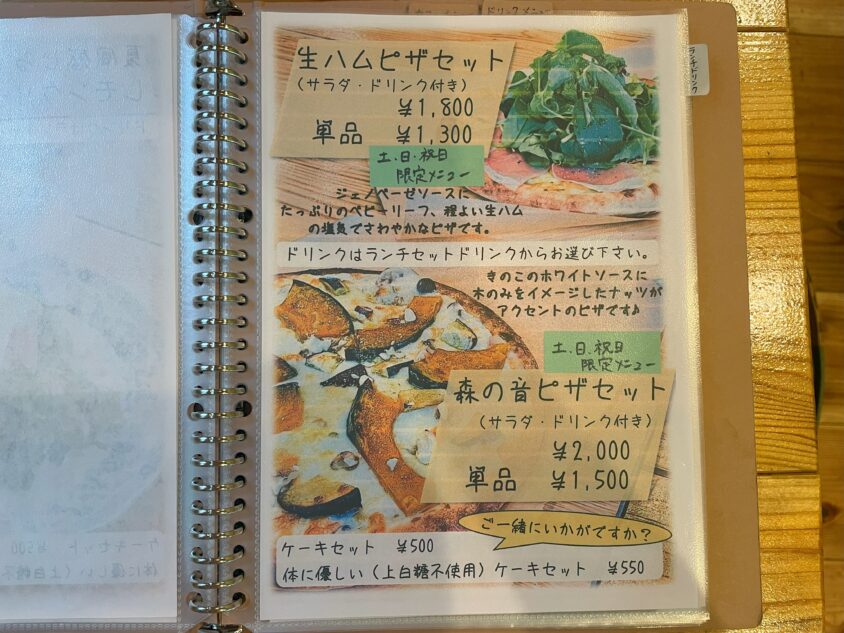 ドリンクメニュー
ランチドリンク
生ハムピザセット
(サラダ・ドリンク付き)
¥1,800
単品 ¥1,300
土・日・祝日
限定メニュー
ジェノベーゼソースに
たっぷりのベビーリーフ、程よい生ハム
の塩気でさわやかなピザです。
ドリンクはランチセットドリンクからお選び下さい。
きのこのホワイトソースに
木のみをイメージしたナッツが
アクセントのピザです♪
土・日・祝日
限定メニュー
森の音ピザセット
(サラダ・ドリンク付き)
¥2,000
単品 ¥1,500
ご一緒にいかがですか?
ケーキセット ¥500
体に優しい(上白糖不使用)ケーキセット ¥550